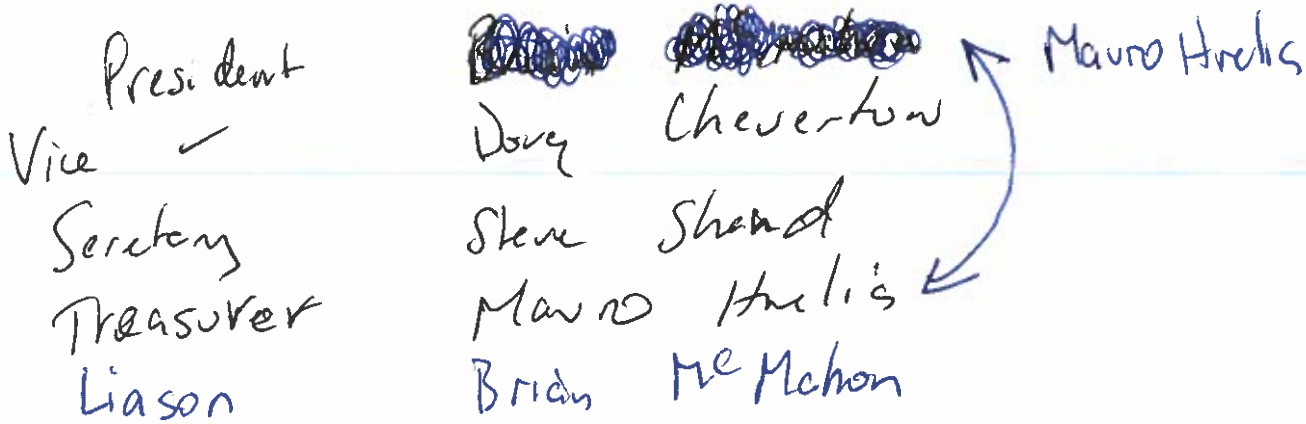 President Mauro Hrelis
Vice ✓ Doug Cheverton
Secretary Steve Shand
Treasurer Mauro Hrelis
Liason Brian McMahon